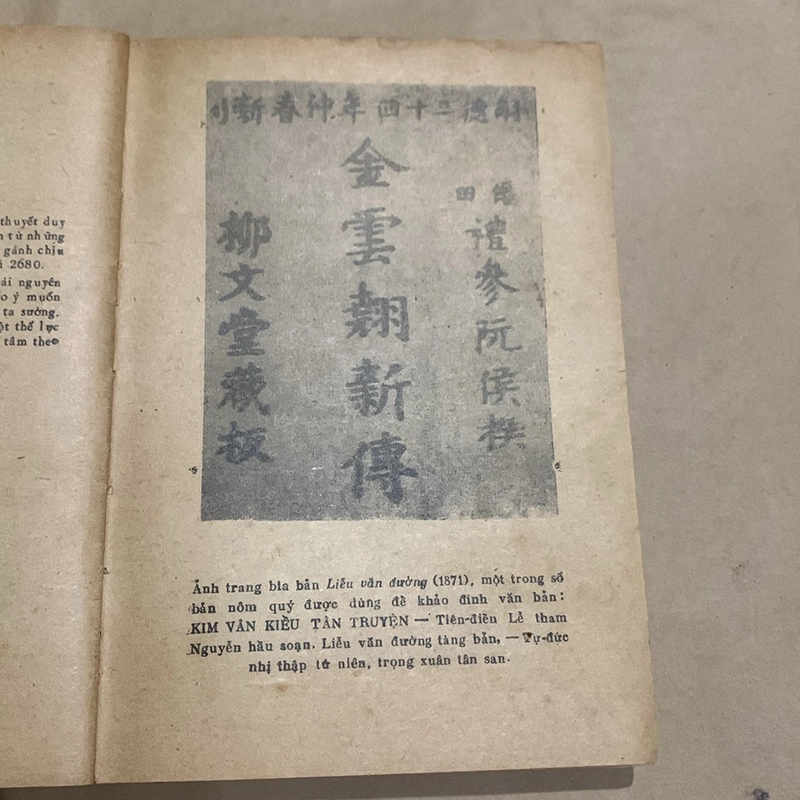 thuyết duy
từ những
gánh chịu
2680.
nguyên
ý muốn
ta sướng.
thế lực
tâm theo
嗣德二十四年仲春新刊
僊田
禮參阮侯撰
金雲翹新傳
柳文堂藏板
Ảnh trang bìa bản Liễu văn đường (1871), một trong số
bản nôm quý được dùng để khảo đính văn bản:
KIM VÂN KIỀU TÂN TRUYỆN — Tiên-điền Lễ tham
Nguyễn hầu soạn. Liễu văn đường tàng bản, — Tự-đức
nhị thập tứ niên, trọng xuân tân san.